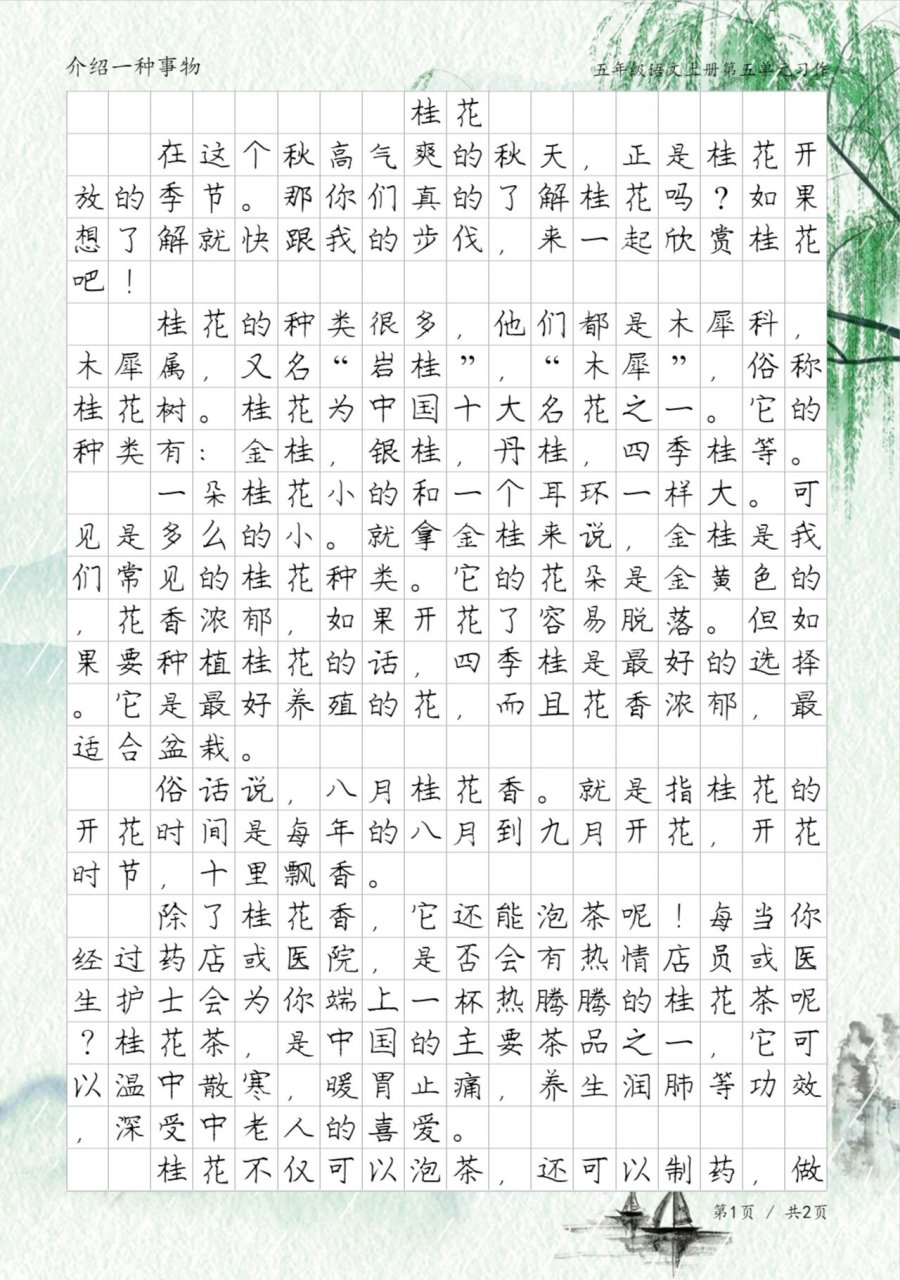 介绍一种事物
五年级语文上册第五单元习作
桂花
在这个秋高气爽的秋天，正是桂花开
放的季节。那你们真的了解桂花吗？如果
想了解就快跟我的步伐，来一起欣赏桂花
吧！
桂花的种类很多，他们都是木犀科，
木犀属，又名“岩桂”，“木犀”，俗称
桂花树。桂花为中国十大名花之一。它的
种类有：金桂，银桂，丹桂，四季桂等。
一朵桂花小的和一个耳环一样大。可
见是多么的小。就拿金桂来说，金桂是我
们常见的桂花种类。它的花朵是金黄色的
，花香浓郁，如果开花了容易脱落。但如
果要种植桂花的话，四季桂是最好的选择
。它是最好养殖的花，而且花香浓郁，最
适合盆栽。
俗话说，八月桂花香。就是指桂花的
开花时间是每年的八月到九月开花，开花
时节，十里飘香。
除了桂花香，它还能泡茶呢！每当你
经过药店或医院，是否会有热情店员或医
生护士会为你端上一杯热腾腾的桂花茶呢
？桂花茶，是中国的主要茶品之一，它可
以温中散寒，暖胃止痛，养生润肺等功效
，深受中老人的喜爱。
桂花不仅可以泡茶，还可以制药，做
第1页 / 共2页